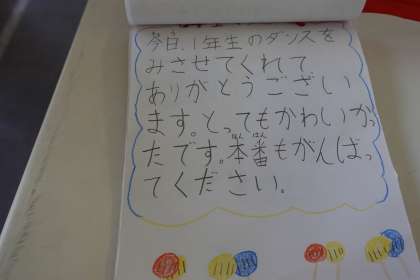 今日、1年生のダンスを
みさせてくれて
ありがとうござい
ます。とってもかわいかっ
たです。本番もがんばっ
てください。